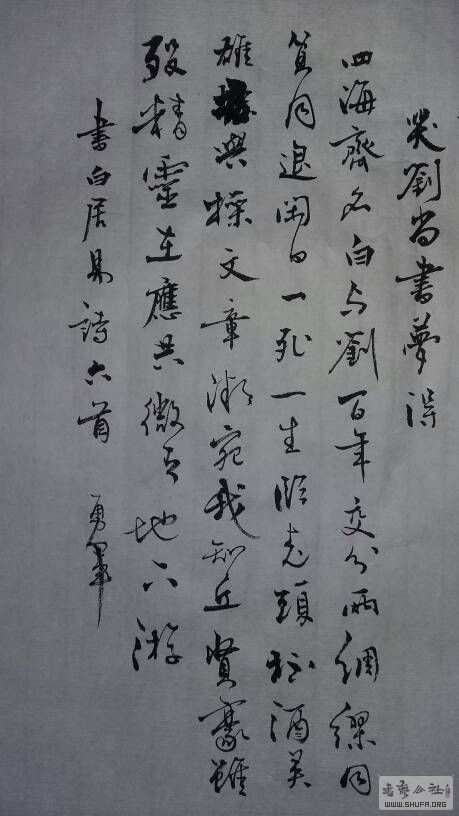 哭劉尚書夢得
四海齊名白与劉百年交分兩綢繆同
貧同退閑日一死一生臨老頭杯酒英
雄與操文章微宛我知丘賢豪雖
歿精靈在應共微之地下游
書白居易詩六首 勇軍
书艺公社
WWW.SHUFA.ORG